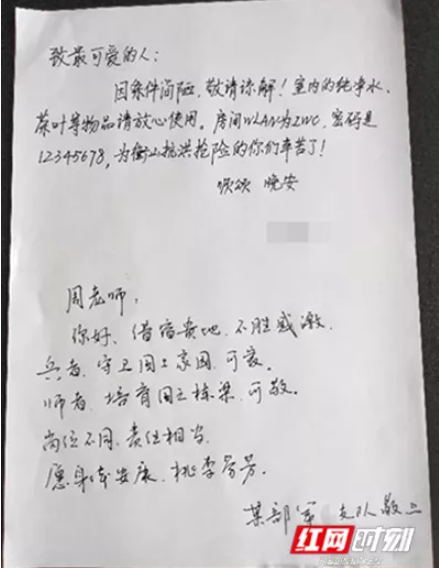 致最可爱的人：
因条件简陋，敬请谅解！室内的纯净水、
茶叶等物品请放心使用。房间WLAN为ZWC，密码是
12345678，为衡山抗洪抢险的你们辛苦了！
顺颂 晚安
周老师，
你好、借宿贵地、不胜感激，
兵者、守卫国土家园，可爱。
师者、培育国之栋梁，可敬。
岗位不同、责任相当
愿身体安康、桃李芬芳。
某部军 支队敬上
红网时刻